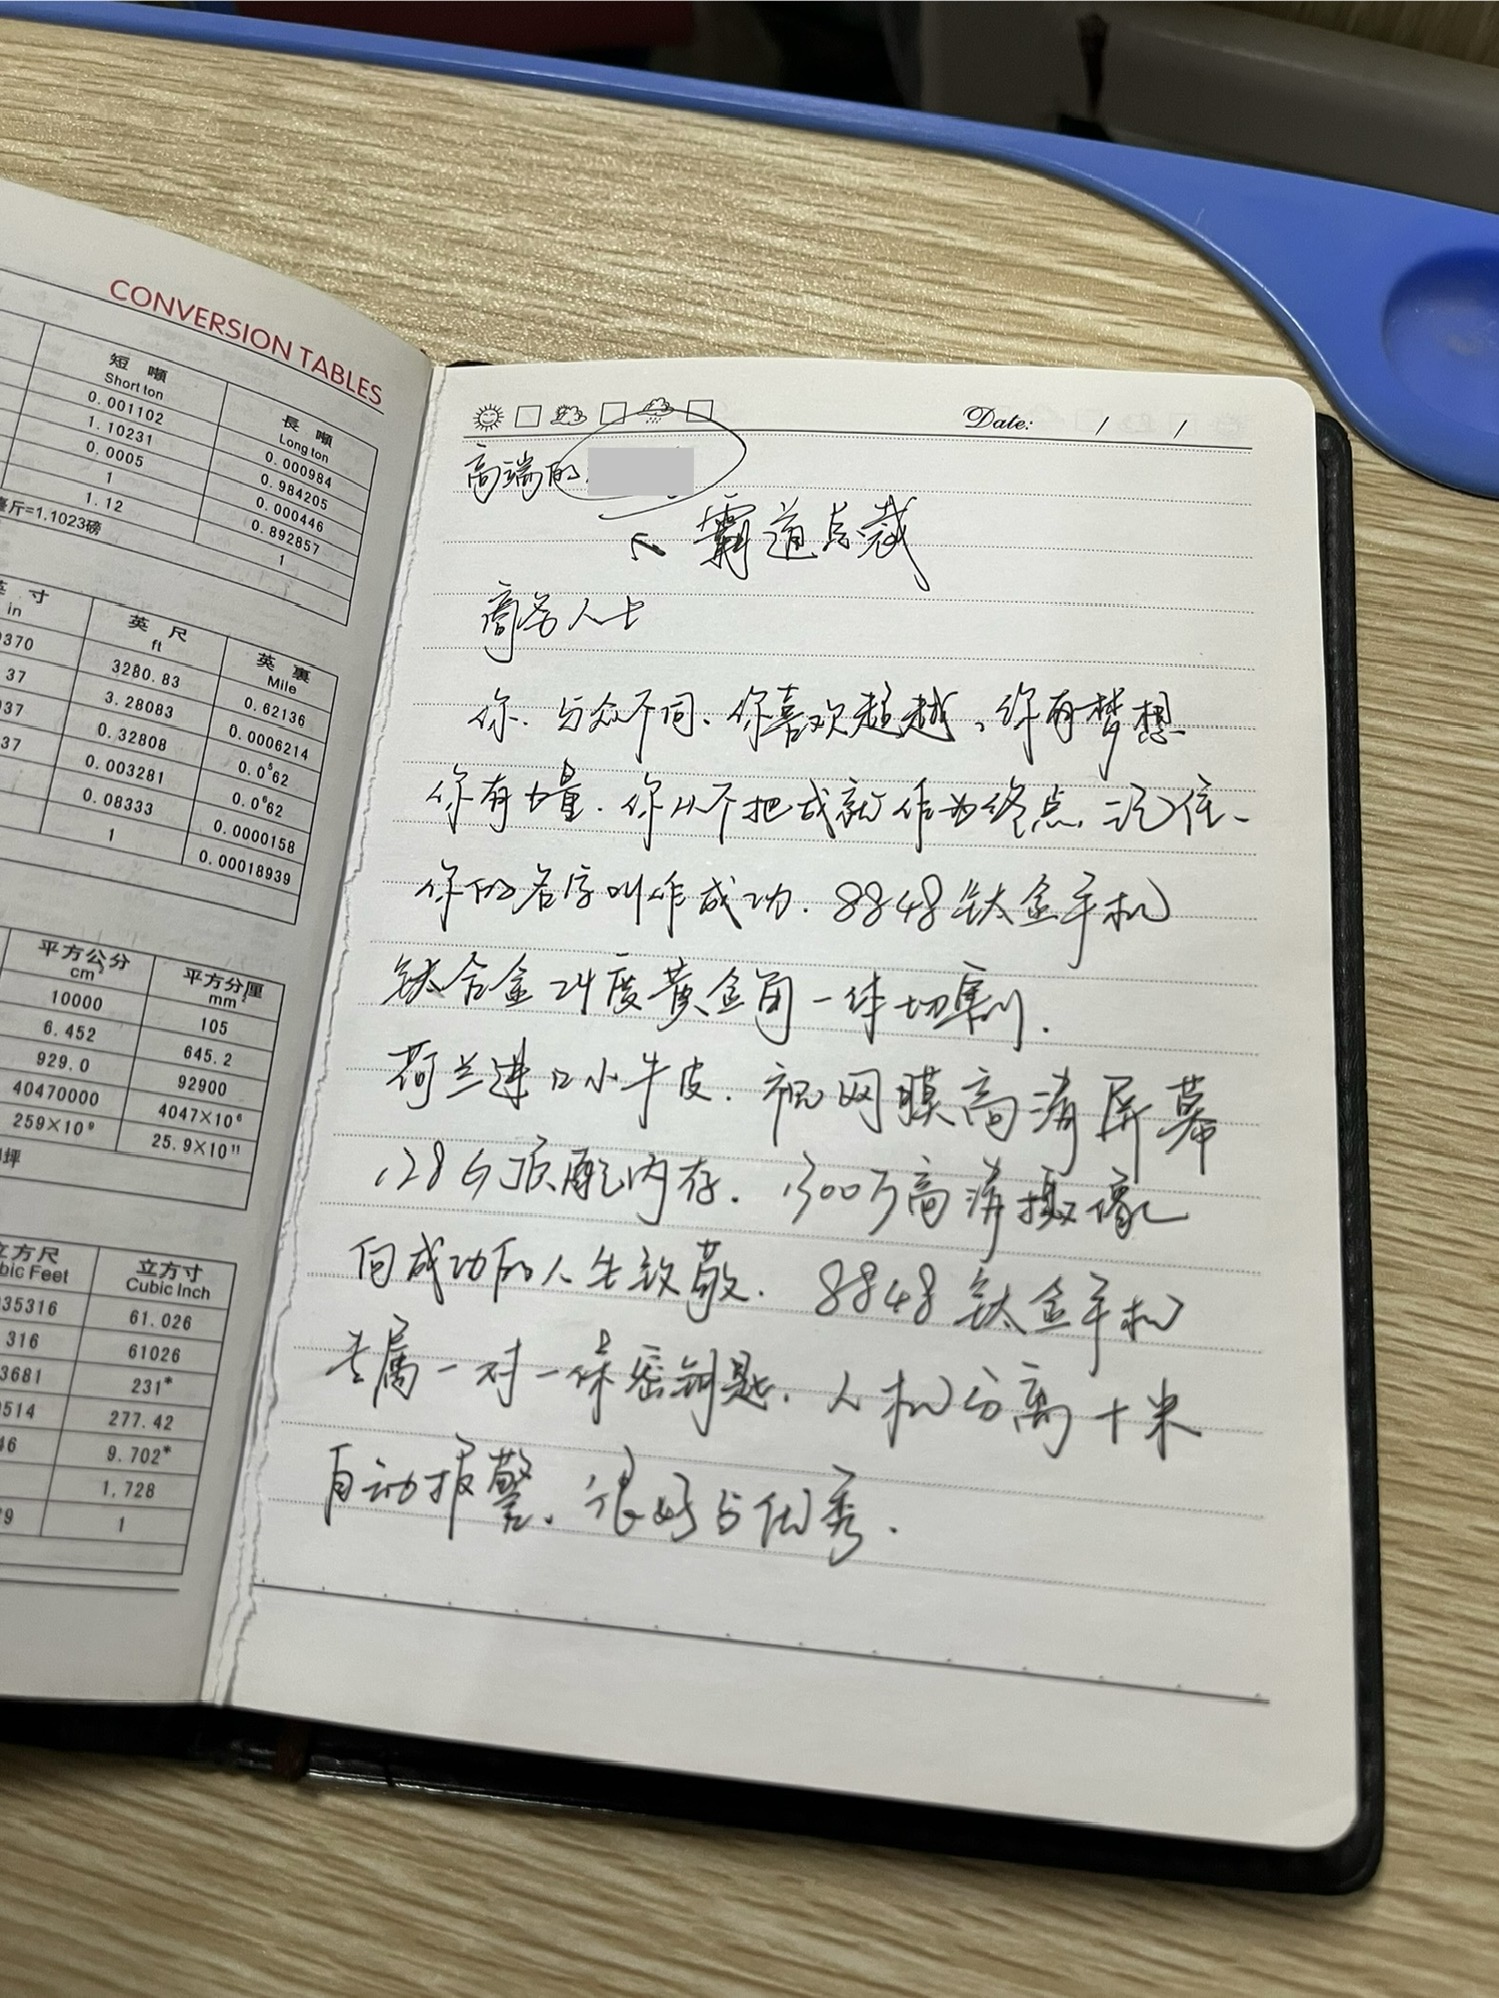 CONVERSION TABLES
短 噸
Short ton
0.001102
1.10231
0.0005
1
1.12
長 噸
Long ton
0.000984
0.984205
0.000446
0.892857
1
臺斤=1.1023磅
英 寸
in
0370
37
037
37
英 尺
ft
3280.83
3.28083
0.32808
0.003281
0.08333
1
英 裏
Mile
0.62136
0.0006214
0.0⁵62
0.0⁶62
0.0000158
0.00018939
平方公分
cm²
10000
6.452
929.0
40470000
259×10⁹
平方分厘
mm²
105
645.2
92900
4047×10⁶
25.9×10¹¹
坪
立方尺
bic Feet
35316
316
3681
0514
46
29
立方寸
Cubic Inch
61.026
61026
231*
277.42
9.702*
1,728
1
Date: / /
高端的
霸道总裁
商务人士
你、与众不同、你喜欢超越、你有梦想
你有力量.你从不把成就作为终点、记住、
你的名字叫作成功.8848钛金手机
钛合金24度黄金角一体切割.
荷兰进口小牛皮.视网膜高清屏幕
128G顶配内存.1300万高清摄像
向成功的人生致敬.8848钛金手机
专属一对一保密钥匙.人机分离十米
自动报警.很好与优秀.